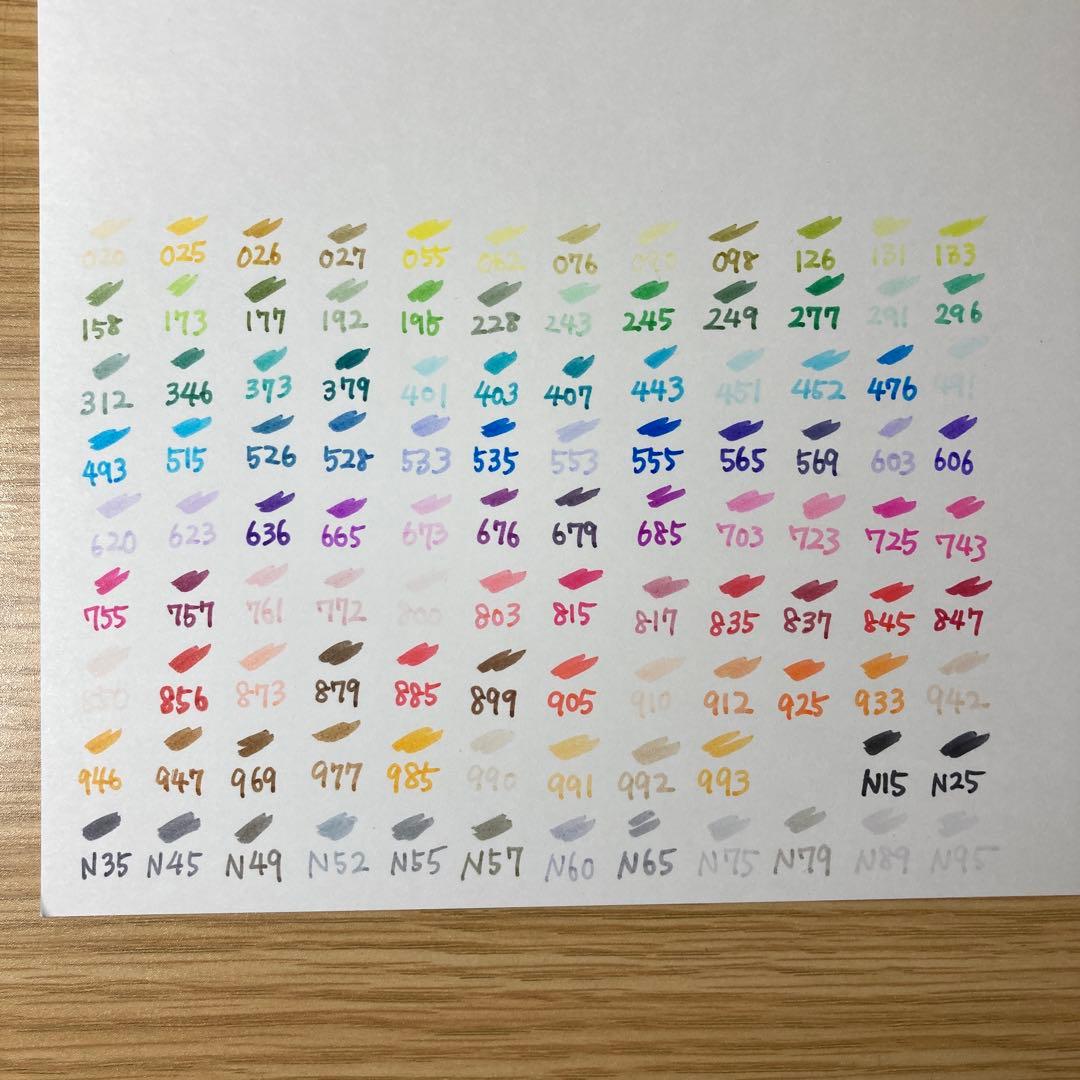 020 025 026 027 055 062 076 090 098 126 131 133
158 173 177 192 195 228 243 245 249 277 291 296
312 346 373 379 401 403 407 443 451 452 476 491
493 515 526 528 533 535 553 555 565 569 603 606
620 623 636 665 673 676 679 685 703 723 725 743
755 757 761 772 800 803 815 817 835 837 845 847
850 856 873 879 885 899 905 910 912 925 933 942
946 947 969 977 985 990 991 992 993 N15 N25
N35 N45 N49 N52 N55 N57 N60 N65 N75 N79 N89 N95